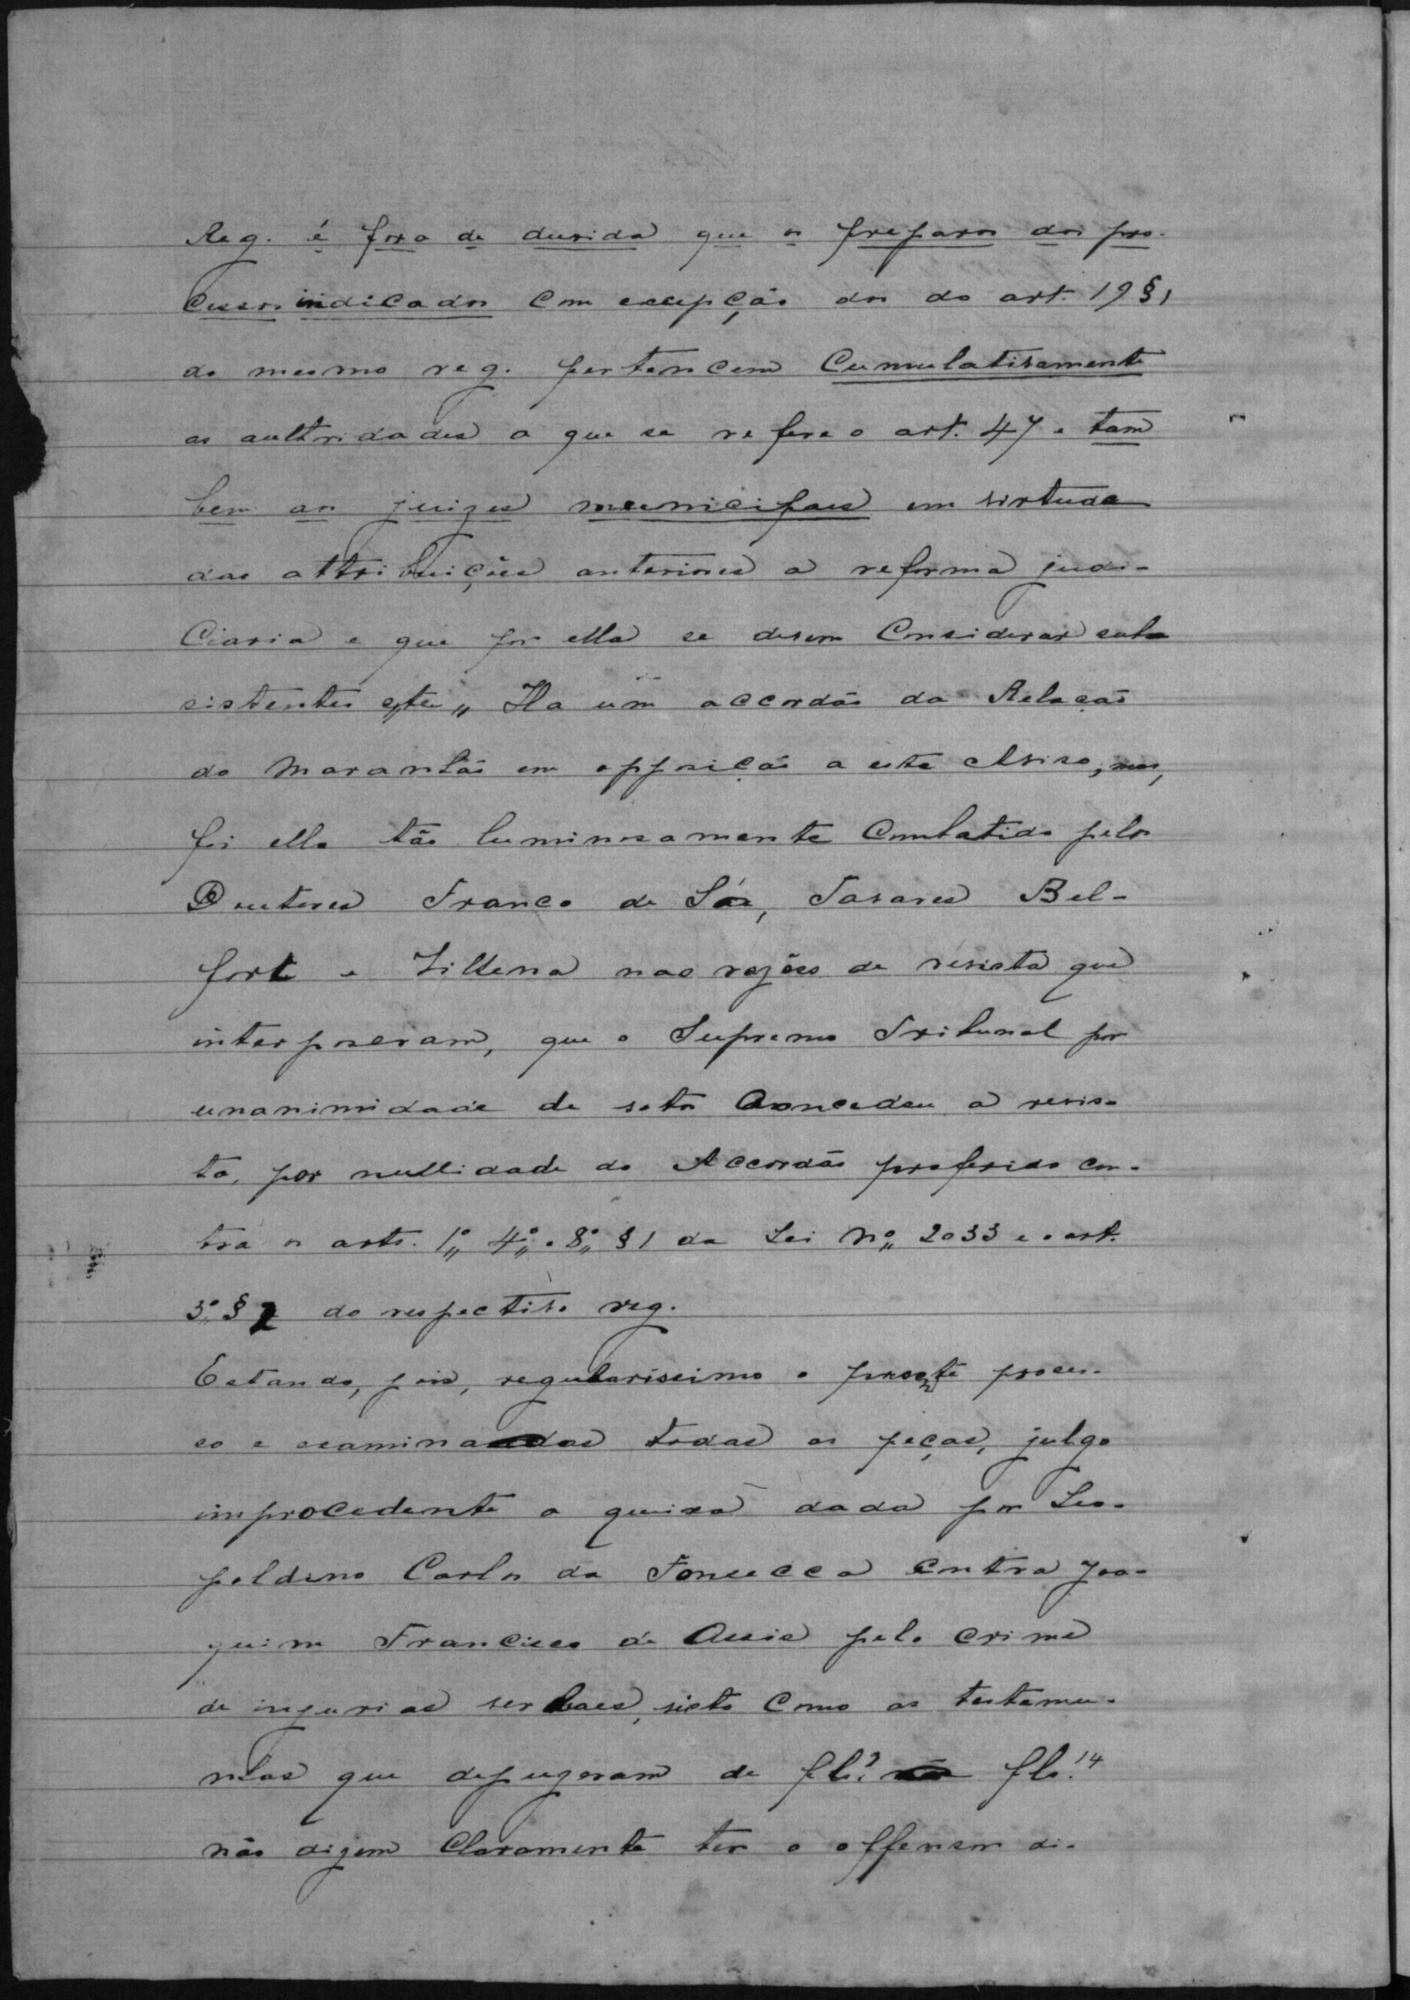 Reg. é fora de duvida que os preparos dos pro-
cessos indicados com excepção dos do art. 19 § 1
do mesmo reg. pertencem cumulativamente
as authoridades a que se refere o art. 47 e tam
bem aos juizes municipaes em virtude
das attribuições anteriores a reforma judi-
ciaria e que por ella se devem considerar sub
sistentes etc „ Ha um accordão da Relação
do Maranhão em opposição a este Aviso, mas,
foi elle tão luminosamente combatido pelos
Doutores Franco de Sá, Tavares Bel-
fort e Vilhena nas rasões de revista que
interposeram, que o Supremo Tribunal por
unanimidade de votos concedeu a revis-
ta, por nullidade do Accordão proferido con-
tra os arts. 1º, 4º e 8º § 1 da Lei Nº 2033 e o art.
5º § 2 do respectivo reg.
Estando, pois, regularissimo o presente proces-
so e examinadas todas as peças, julgo
improcedente a queixa dada por Leo-
poldino Carlos da Fonsecca contra Joa-
quim Francisco de Assis pelo crime
de injurias verbaes, visto como as testemu-
nhas que depuzeram de fls. fls. 14
não dizem claramente ter o offensor di-